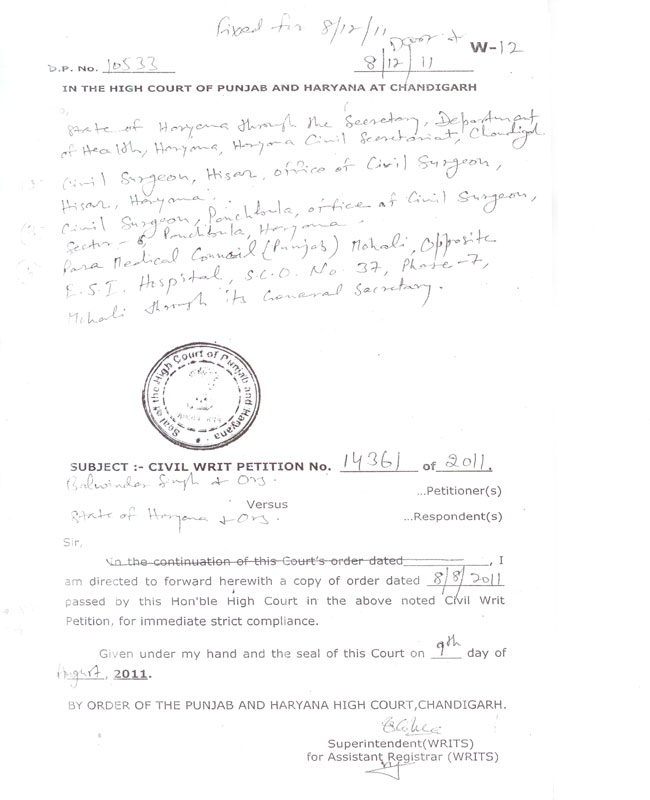 Fixed for 8/12/11
W-12
D.P. No. 10533
8/12/11
IN THE HIGH COURT OF PUNJAB AND HARYANA AT CHANDIGARH
State of Haryana through the Secretary, Department
of Health, Haryana, Haryana Civil Secretariat, Chandigarh
Civil Surgeon, Hisar, office of Civil Surgeon,
Hisar, Haryana.
Civil Surgeon, Panchkula, office of Civil Surgeon,
Sector-6, Panchkula, Haryana.
Para Medical Council (Punjab) Mohali, Opposite
E.S.I. Hospital, S.C.O. No. 37, Phase-7,
Mohali through its General Secretary.
Seal of the High Court of Punjab and Haryana
SUBJECT :- CIVIL WRIT PETITION No. 14361 of 2011.
Balwinder Singh & Ors
...Petitioner(s)
Versus
State of Haryana & Ors.
...Respondent(s)
Sir,
In the continuation of this Court's order dated____________, I
am directed to forward herewith a copy of order dated 8/8/2011
passed by this Hon'ble High Court in the above noted Civil Writ
Petition, for immediate strict compliance.
Given under my hand and the seal of this Court on 9th day of
August, 2011.
BY ORDER OF THE PUNJAB AND HARYANA HIGH COURT,CHANDIGARH.
Superintendent(WRITS)
for Assistant Registrar (WRITS)